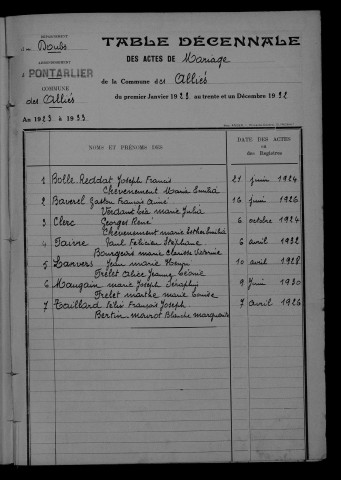 DÉPARTEMENT
du Doubs
ARRONDISSEMENT
de PONTARLIER
COMMUNE
des Alliés
AN 1923 à 1933
TABLE DÉCENNALE
DES ACTES DE Mariage
de la Commune des Alliés
du premier Janvier 1923 au trente et un Décembre 1932
NOMS ET PRÉNOMS DES
DATE DES ACTES
ou
des Registres
1 Bolle-Reddat Joseph Francis 21 juin 1924
Chevenement Marie
2 Baverel Gaston Francis Aimé 16 juin 1926
Verdant Léa Marie Julia
3 Clerc Georges René 6 octobre 1924
Chevenement Marie Esther
4 Faivre Paul Félicien Stéphane 6 avril 1932
Bourgeois Marie Clarisse
5 Lanvers Jean Marie Henri 10 avril 1928
Trelet Alice Jeanne
6 Maugain Marie Joseph Séraphin 9 juin 1930
Trelet Marthe Marie
7 Taillard Félix François Joseph 7 avril 1926
Bertin-Mourot Blanche Marguerite